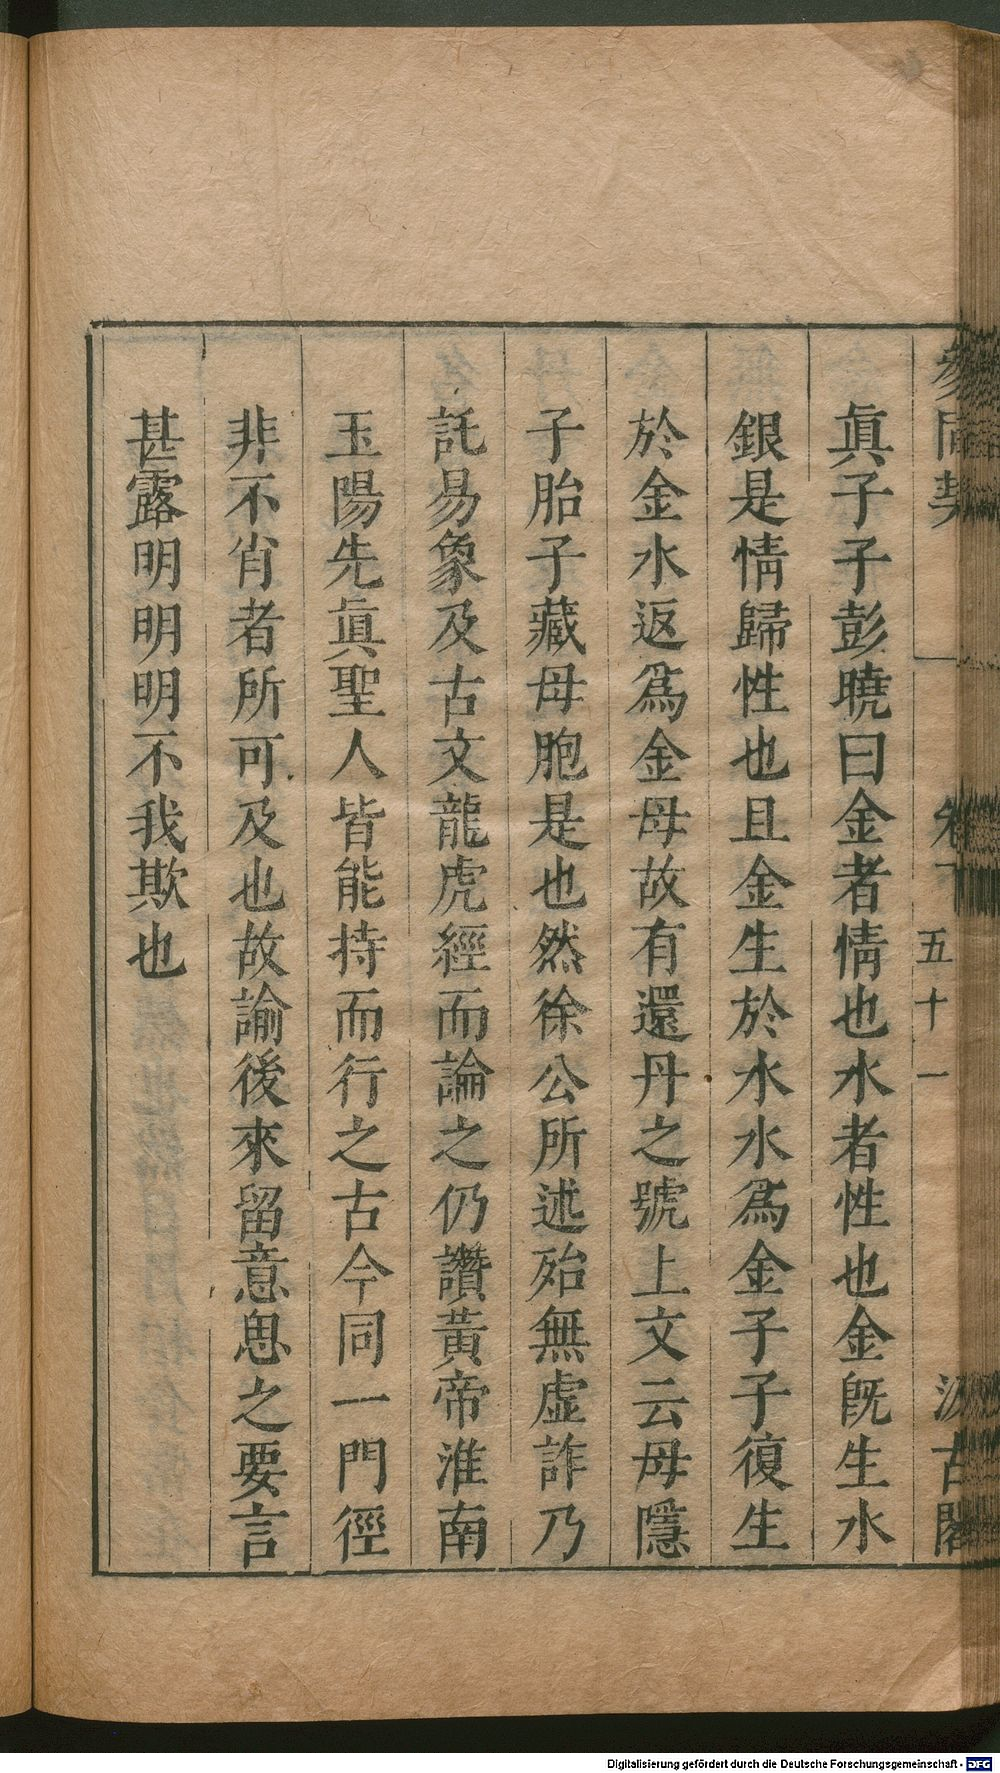 參同契
卷下
五十一
汲古閣
眞子子彭曉曰金者情也水者性也金旣生水
銀是情歸性也且金生於水水爲金子子復生
於金水返爲金母故有還丹之號上文云母隱
子胎子藏母胞是也然徐公所述殆無虛詐乃
託易象及古文龍虎經而論之仍讚黃帝淮南
玉陽先眞聖人皆能持而行之古今同一門徑
非不肖者所可及也故諭後來留意思之要言
甚露明明明不我欺也
Digitalisierung gefördert durch die Deutsche Forschungsgemeinschaft - DFG